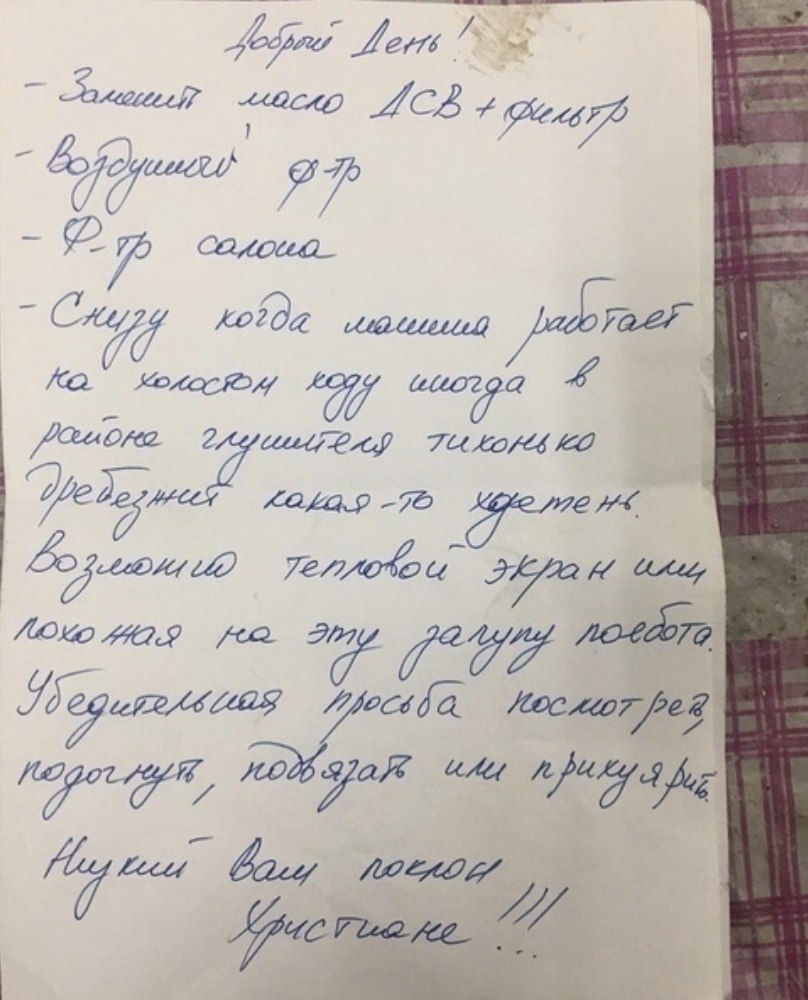 Добрый День!
- Заменить масло ДСВ + фильтр
- Воздушный ф-тр
- Ф-тр салона
- Снизу когда машина работает
на холостом ходу иногда в
района глушителя тихонько
дребезжит какая-то хуетень.
Возможно тепловой экран или
похожая на эту залупу поебота.
Убедительная просьба посмотреть,
подогнуть, подвязать или прихуярить.
Низкий Вам поклон
Христиане!!!